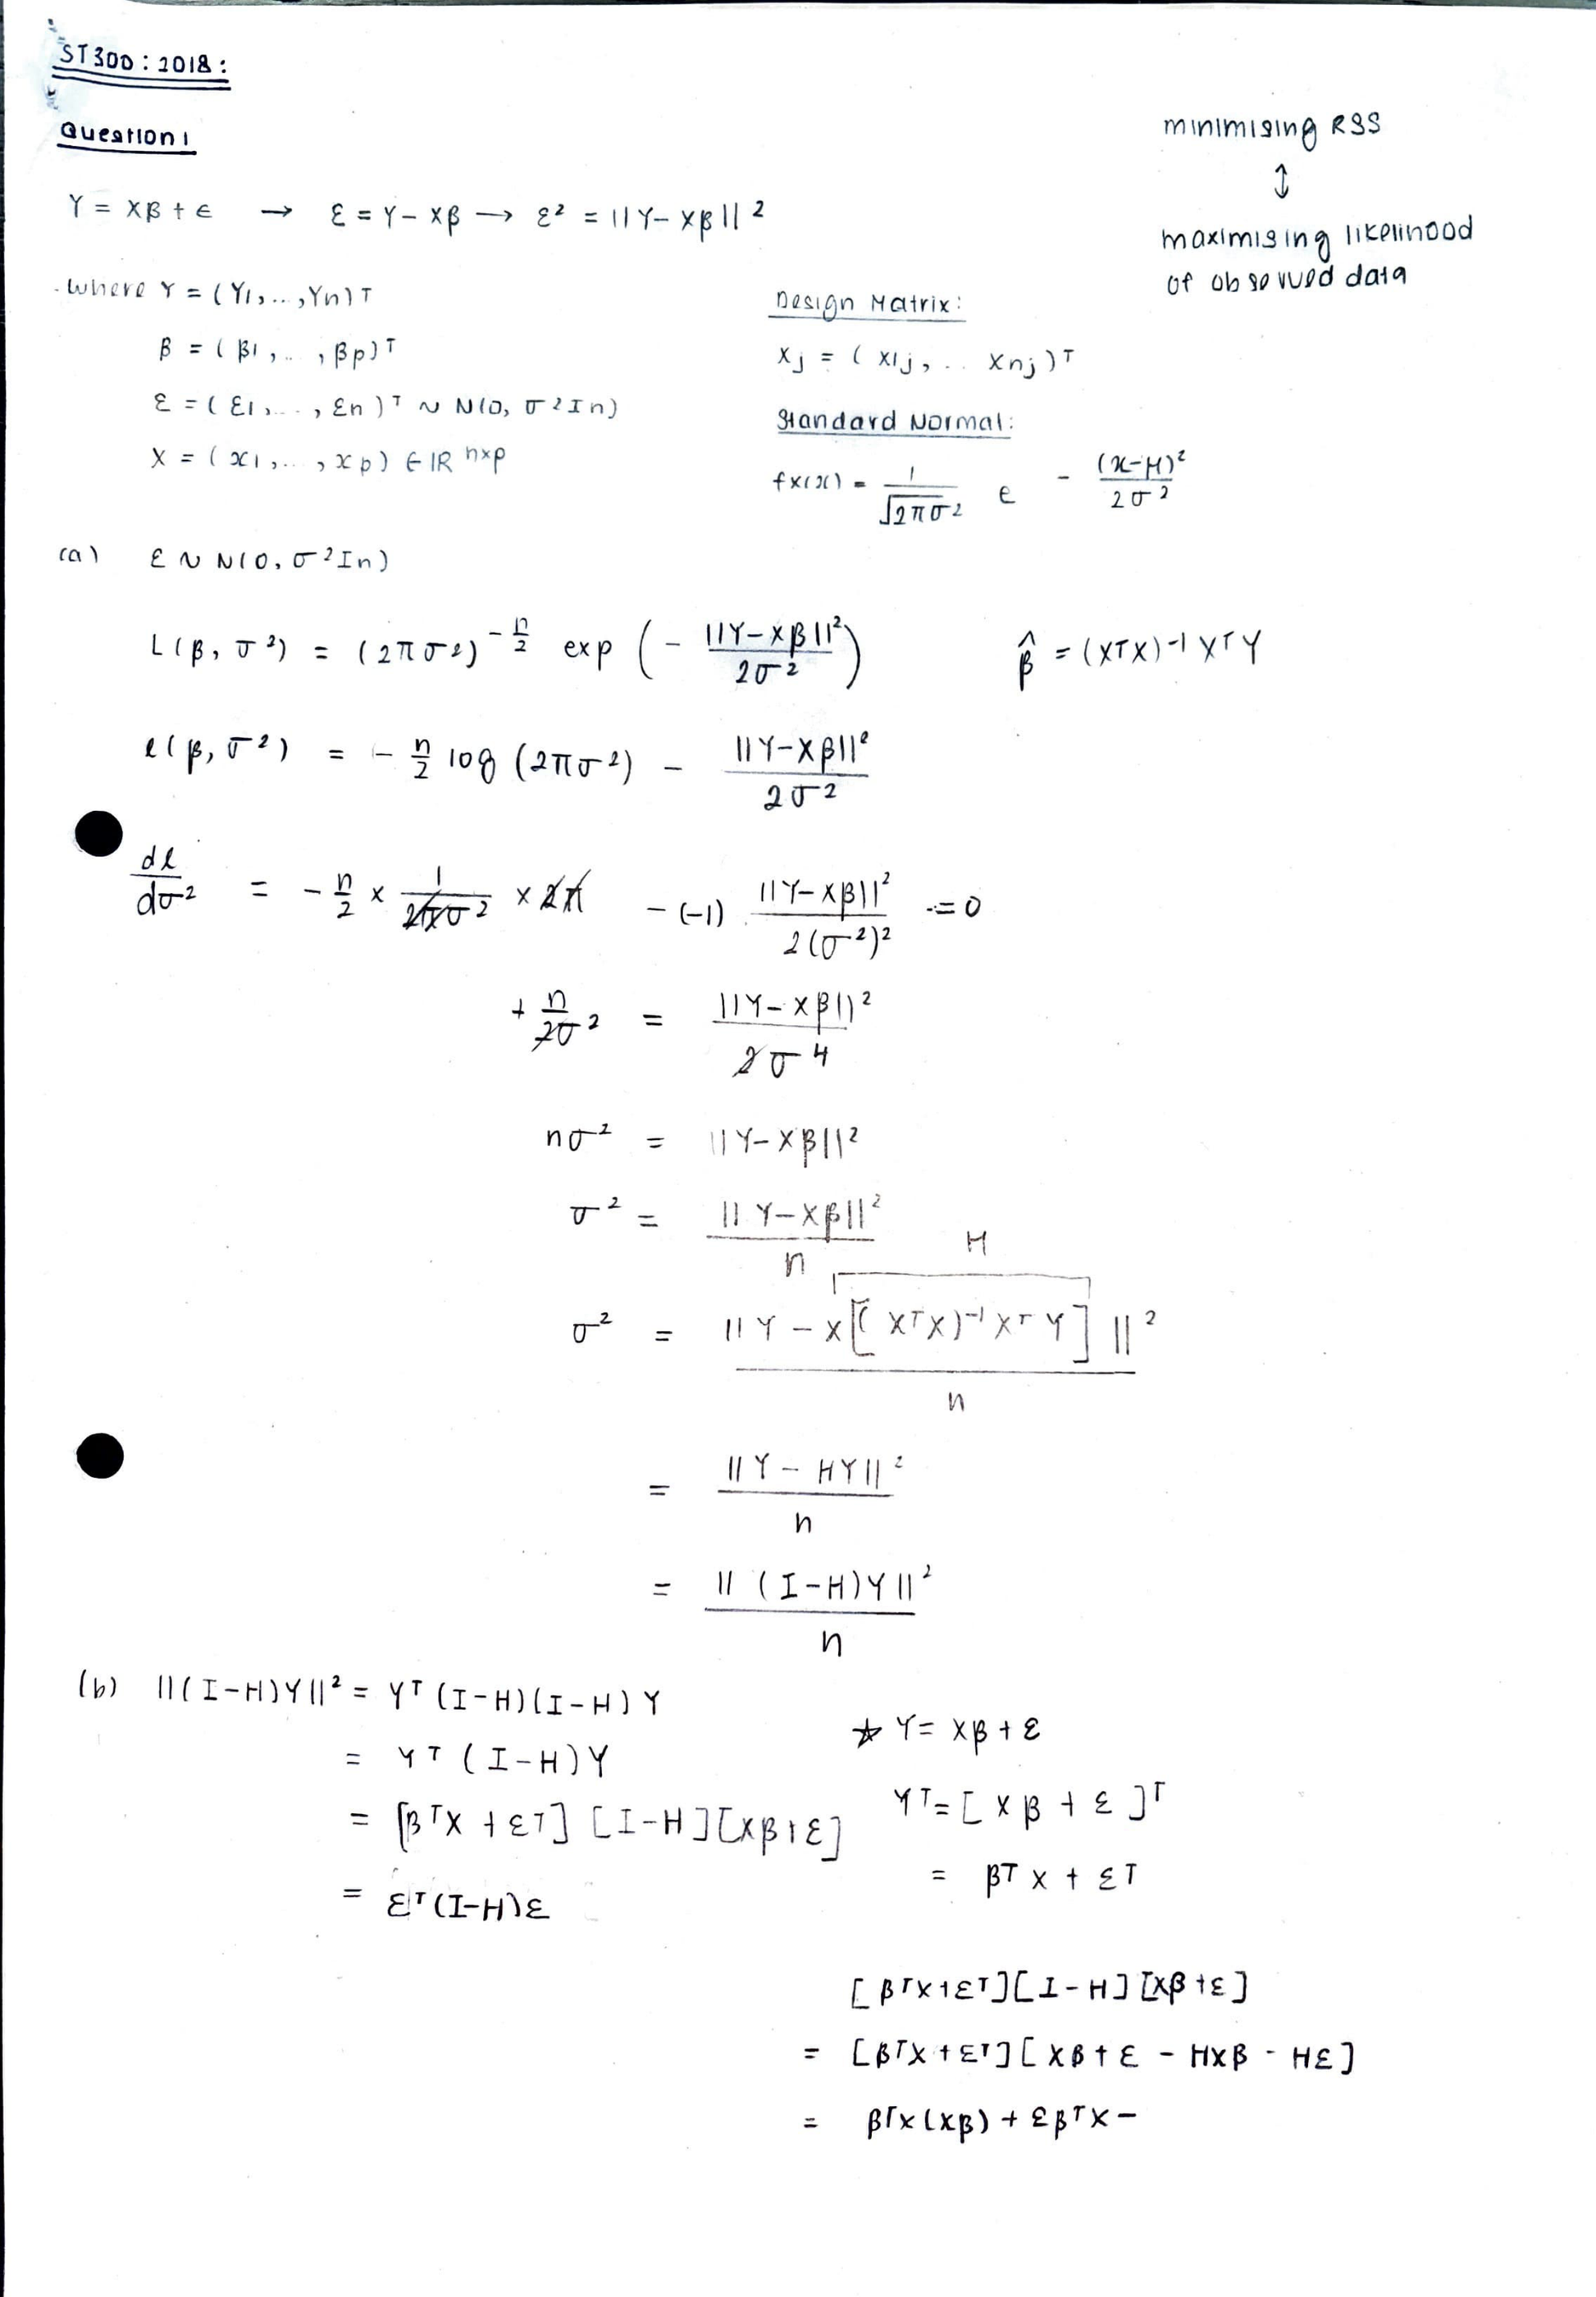 ST300 : 2018 :
Question 1
minimising RSS
↕
maximising likelihood
of observed data
Y = Xβ + ε → ε = Y - Xβ → ε² = ||Y - Xβ||²
where Y = (Y1, .., Yn)ᵀ
β = (β1, .. , βp)ᵀ
ε = (ε1, ... , εn)ᵀ ~ N(0, σ²In)
X = (x1, .. , xp) ∈ ℝ ⁿˣᵖ
Design Matrix:
Xj = (x1j, .. xnj)ᵀ
Standard Normal:
fx(x) = 1/√2πσ² e - (x-μ)²/2σ²
(a) ε ~ N(0, σ²In)
L(β, σ²) = (2πσ²)^-n/2 exp (- ||Y-Xβ||²/2σ²)
β̂ = (XᵀX)⁻¹XᵀY
ℓ(β, σ²) = - n/2 log (2πσ²) - ||Y-Xβ||²/2σ²
dℓ/dσ² = - n/2 × 1/2πσ² × 2π - (-1) ||Y-Xβ||²/2(σ²)² = 0
+ n/2σ² = ||Y-Xβ||²/2σ⁴
nσ² = ||Y-Xβ||²
σ² = ||Y-Xβ||²/n
H
σ² = ||Y - X[(XᵀX)⁻¹XᵀY]||²/n
= ||Y - HY||²/n
= ||(I-H)Y||²/n
(b) ||(I-H)Y||² = Yᵀ(I-H)(I-H)Y
= Yᵀ(I-H)Y
= [βᵀX + εᵀ][I-H][Xβ+ε]
= εᵀ(I-H)ε
☆ Y = Xβ + ε
Yᵀ = [Xβ + ε]ᵀ
= βᵀX + εᵀ
[βᵀX+εᵀ][I-H][Xβ+ε]
= [βᵀX+εᵀ][Xβ+ε - HXβ - Hε]
= βᵀX(Xβ) + εβᵀX -